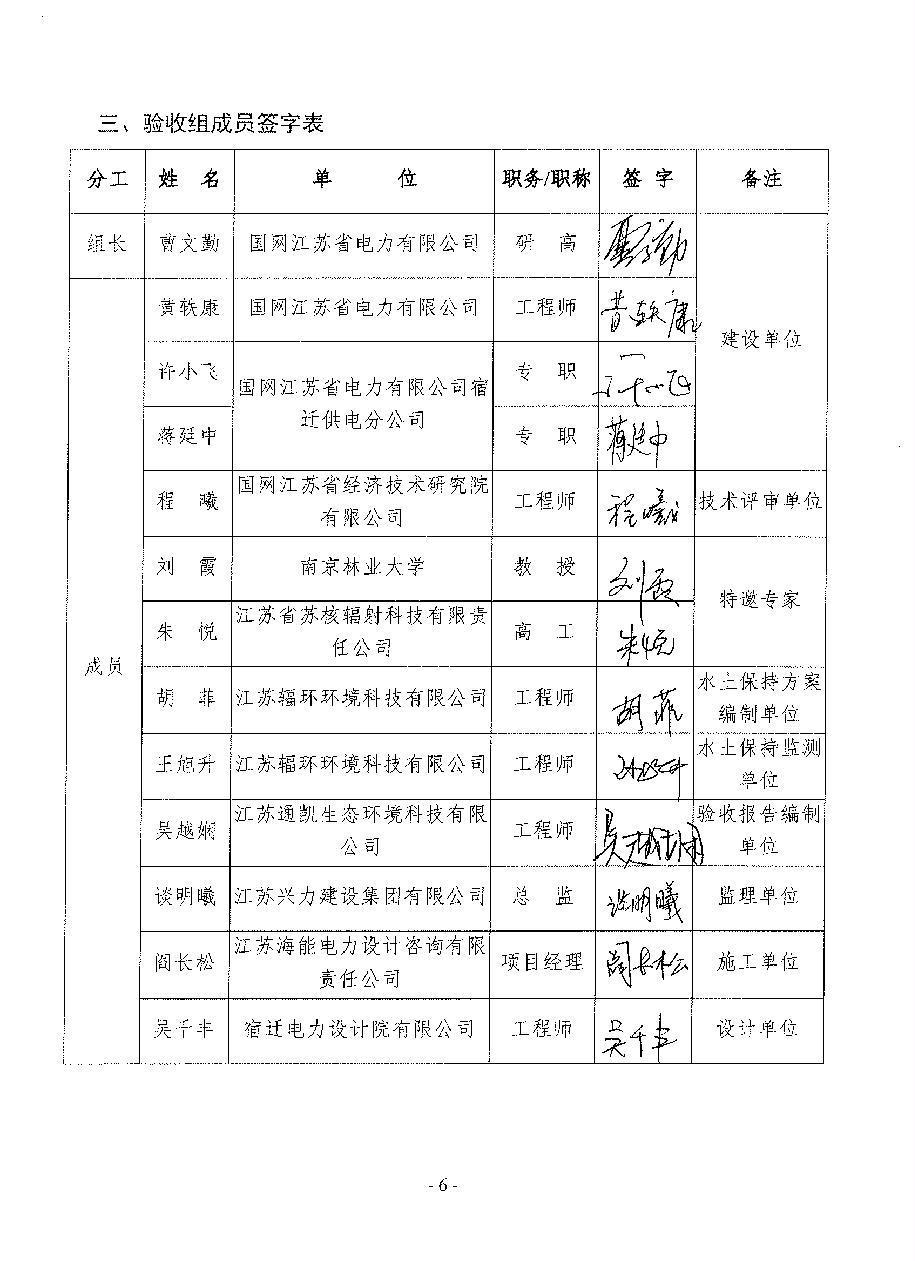 三、验收组成员签字表
分工 姓 名 单 位 职务/职称 签 字 备注
组长 曹文勤 国网江苏省电力有限公司 研 高
黄轶康 国网江苏省电力有限公司 工程师 黄轶康
建设单位
许小飞 专 职
国网江苏省电力有限公司宿
迁供电分公司
蒋廷中 专 职 蒋廷中
国网江苏省经济技术研究院
程 曦 工程师 程曦 技术评审单位
有限公司
刘 霞 南京林业大学 教 授 刘霞
特邀专家
江苏省苏核辐射科技有限责
朱 悦 高 工 朱悦
任公司
成员
水土保持方案
胡 菲 江苏辐环环境科技有限公司 工程师 胡菲
编制单位
水土保持监测
王旭升 江苏辐环环境科技有限公司 工程师
单位
江苏通凯生态环境科技有限 验收报告编制
吴越娴 工程师 吴越娴
公司 单位
谈明曦 江苏兴力建设集团有限公司 总 监 谈明曦 监理单位
江苏海能电力设计咨询有限
阎长松 项目经理 阎长松 施工单位
责任公司
吴千丰 宿迁电力设计院有限公司 工程师 吴千丰 设计单位
- 6 -